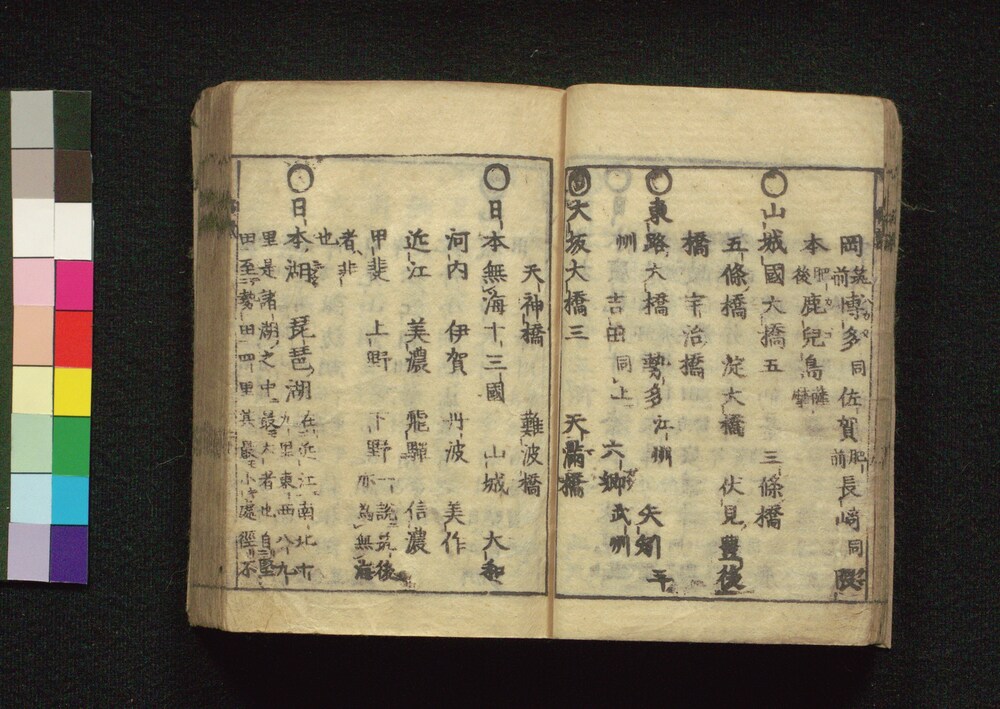 岡 筑前 博多 同 佐賀 肥前 長崎 同
本 肥後 鹿兒島 薩
山城國大橋五 三條橋
五條橋 淀大橋 伏見豊後
橋 宇治橋
東路大橋 勢多 江州 矢矧
州 吉田 同上 六郷 武州
大坂大橋三 天滿橋
天神橋 難波橋
日本無海十三國 山城 大和
河内 伊賀 丹波 美作
近江 美濃 飛驒 信濃
甲斐 上野 下野 一説筑後亦為無海
者非也
日本湖 琵琶湖 在近江南北廿九里東西八九
里是諸湖之中最大者也自堅
田至勢田四里其最小處徑不